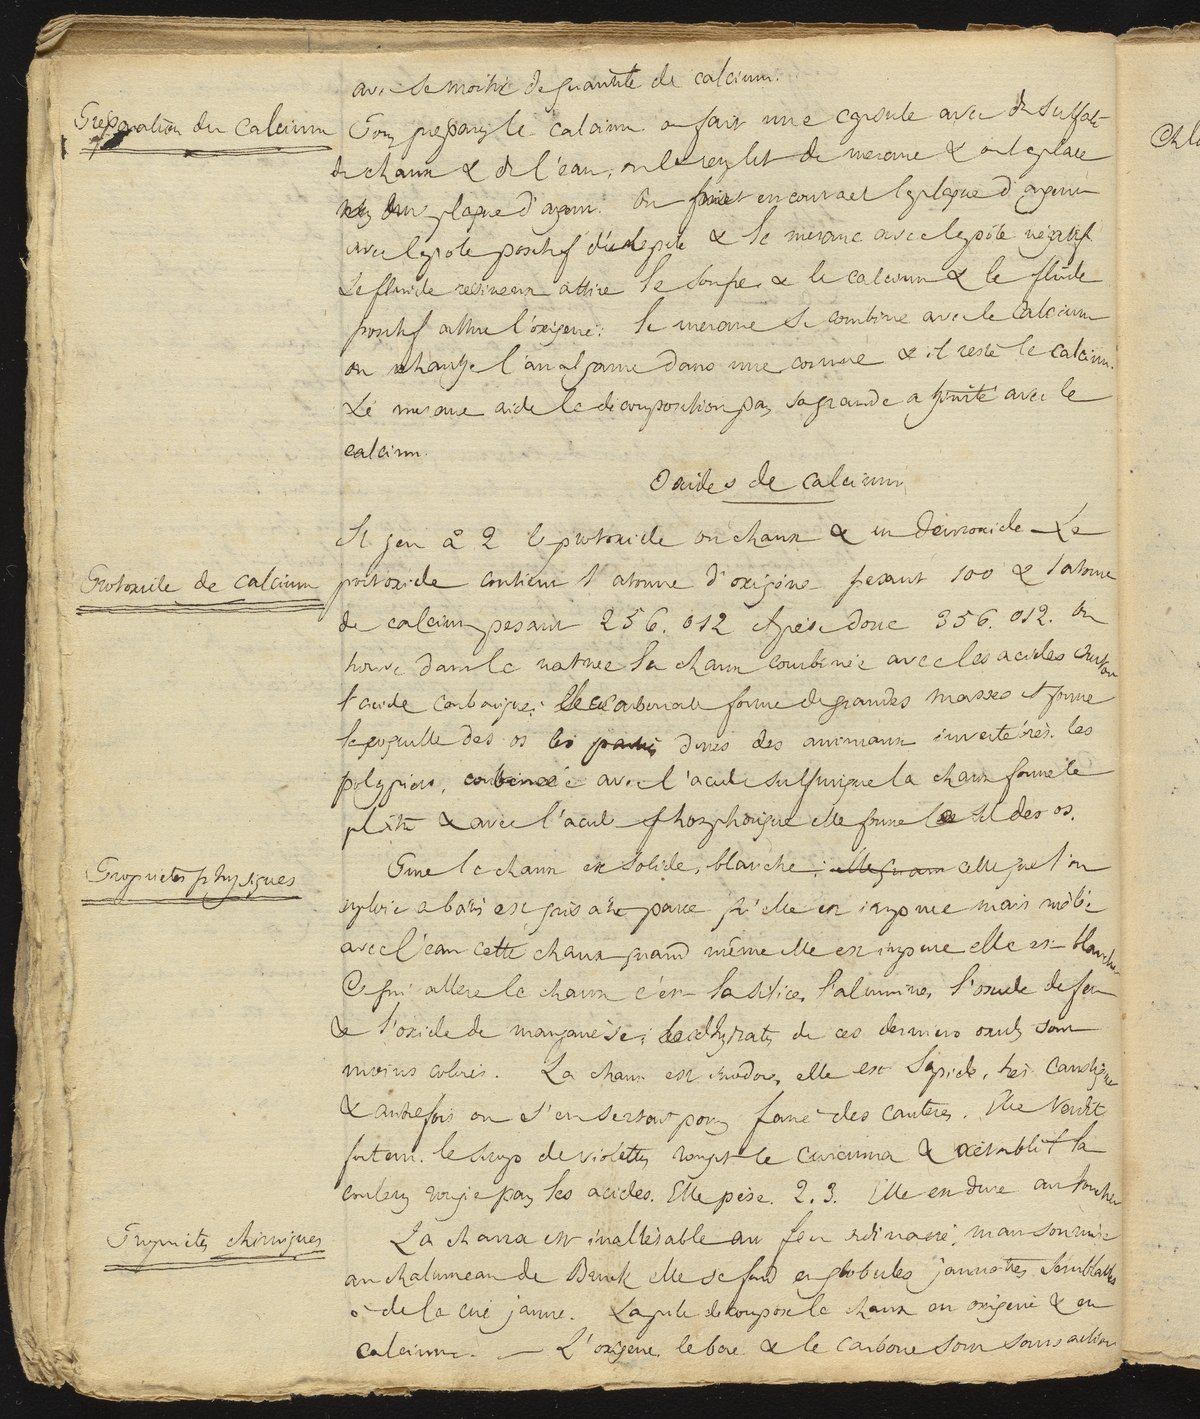 avec le moitié de quantité de calcium.
Preparation du Calcium
Pour preparer le calcium on fait une capsule avec du sulfate
de chaux & de l'eau, on la remplit de mercure & on la place
sur une plaque d'argent. On met en contact la plaque d'argent
avec le pôle positif d'une pile & le mercure avec le pôle négatif
Le fluide resineux attire le soufre & le calcium & le fluide
positif attire l'oxigene; le mercure se combine avec le calcium
on chauffe l'amalgame dans une cornue & il reste le calcium.
Le mercure aide la decomposition par sa grande afinité avec le
calcium.
Oxides de calcium
Il y en à 2 le protoxide ou chaux & un deutoxide Le
Protoxide de calcium
protoxide contient 1 atome d'oxigène pesant 100 & 1 atome
de calcium pesant 256.012 il pèse donc 356.012. On
trouve dans la nature la chaux combinée avec les acides surtout
l'acide carbonique; le carbonate forme de grandes masses & forme
la coquille des os les parties dures des animaux invertébrés les
polypiers, combinée avec l'acide sulfurique la chaux forme le
plâtre & avec l'acide phosphorique elle forme le sel des os.
Proprietés physiques
Pure la chaux est solide, blanche; celle que l'on
emploie a batir est grisatre parce qu'elle est impure mais mêlée
avec l'eau cette chaux quand même elle est impure elle est blanche
Ce qui altere la chaux c'est la silice, l'alumine, l'oxide de fer
& l'oxide de manganèse; les hydrates de ces derniers oxides sont
moins colorés. La chaux est inodore, elle est sapide, très caustique
& autrefois on s'en servait pour faire des cauteres. Elle verdit
fortem. le sirop de violettes rougit le curcuma & rétablit la
couleur rougie par les acides. Elle pèse 2.3. Elle est dure au toucher
Proprietés chimiques
La chaux est inalterable au feu ordinaire, mais soumise
au chalumeau de Brook elle se fond en globules jaunatres semblables
à de la cire jaune. La pile decompose la chaux en oxigene & en
calcium. — L'oxigene, le bore & le carbone sont sans action